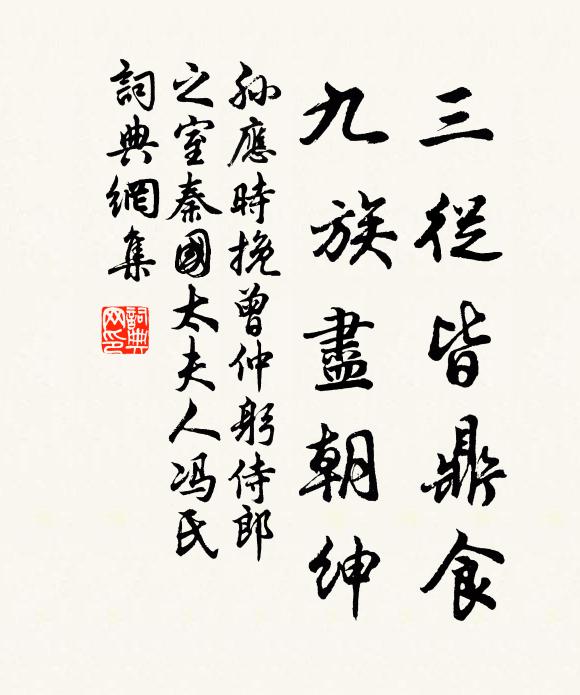 三從皆鼎食
九族盡朝紳
孫應時挽曾仲躬侍郎
之室秦國太夫人冯氏
詞典網集
詞典
网印